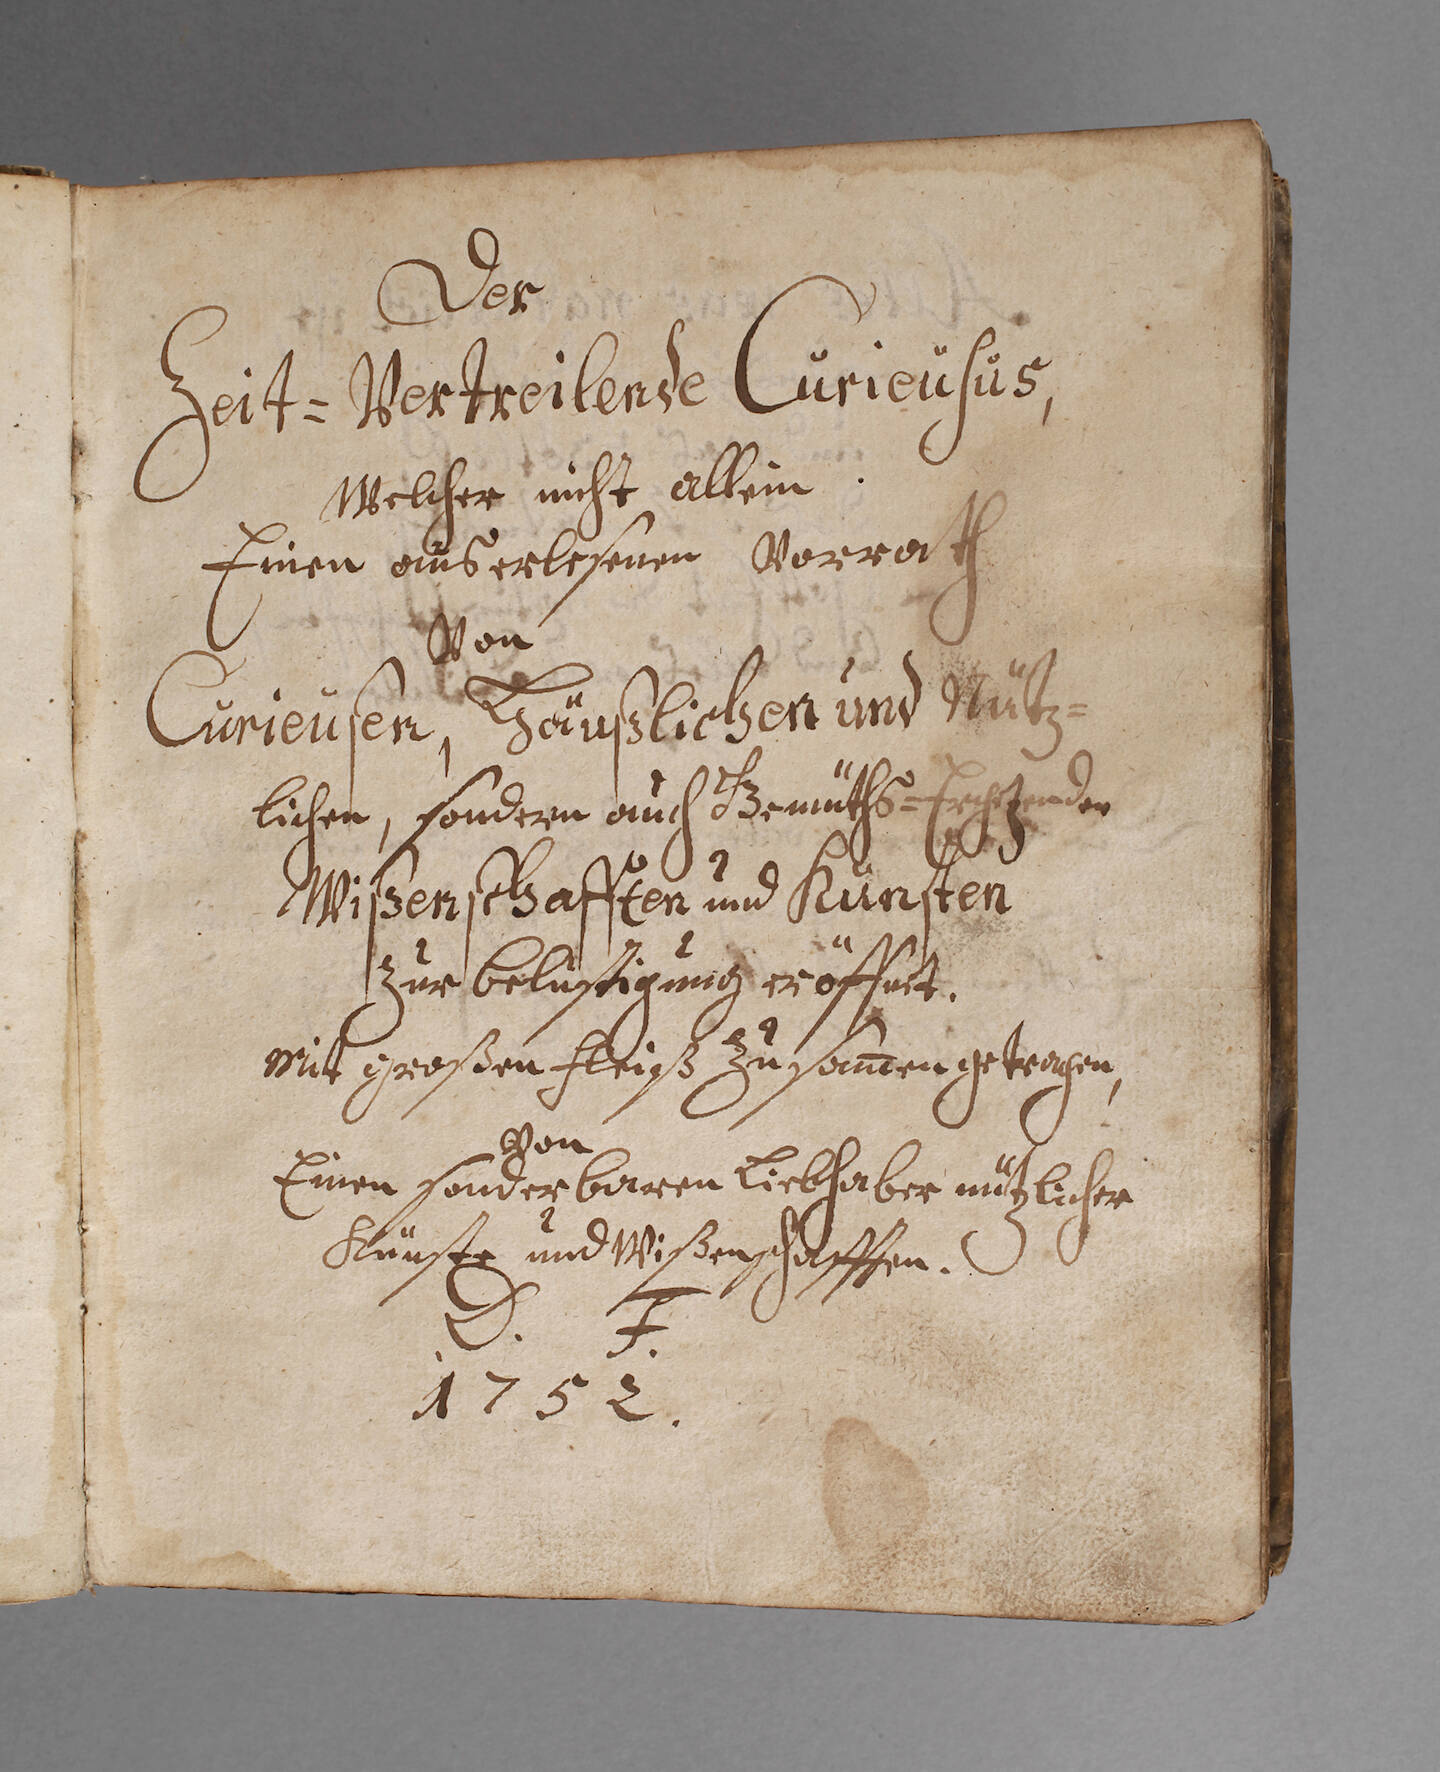 Der
Zeit=Vertreilende Curieusus,
Welcher nicht allein
Einen auserlesenen Vorrath
Von
Curieusen, Häußlichen und Nütz=
lichen, sondern auch Gemüths=Ergetzenden
Wißenschafften und Künsten
Zur belustigung eröffnet.
Mit großen fleiß Zusam̅en getragen,
Von
Einen sonderbaren Liebhaber nützlicher
Künste und Wißenschafften.
D. F.
1752.